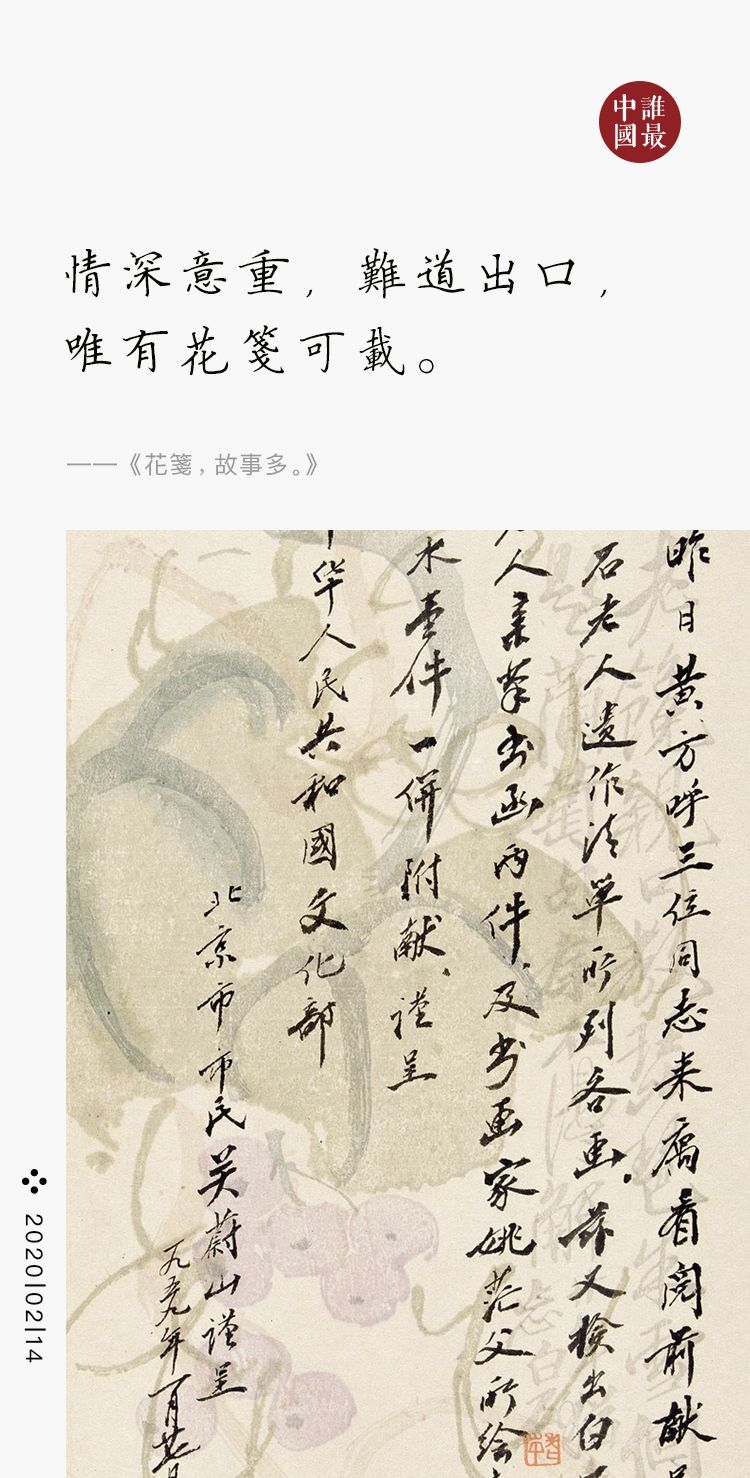 誰最
中國
情深意重，難道出口，
唯有花箋可載。
——《花箋，故事多。》
昨日黃方呼三位同志来寓看閱前献
石老人遺作清单所列各画.兹又檢出白
人亲笔書函两件.及书画家姚茫父所绘
水壹件一併附献、谨呈
华人民共和國文化部
北京市市民关蔚山谨呈
一九五九年一月廿
2020|02|14